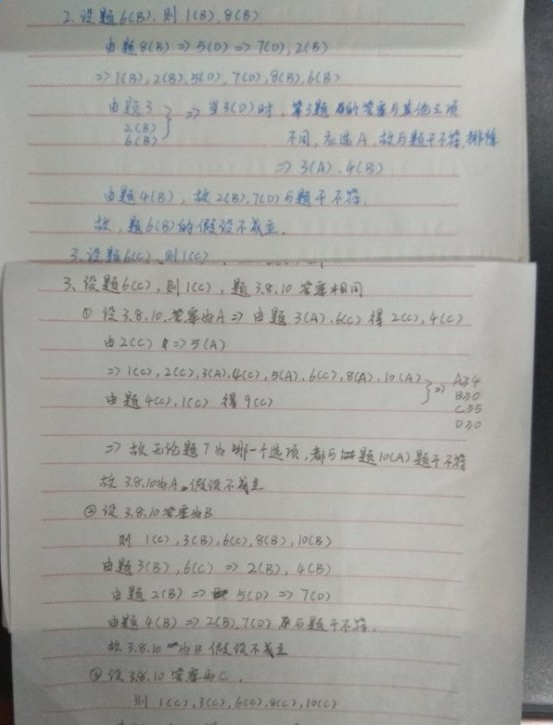 2. 设题6(B), 则1(B), 8(B)
由题8(B) => 5(D) => 7(D), 2(B)
=> 1(B), 2(B), 5(D), 7(D), 8(B), 6(B)
由题3
2(B)
6(B)
} => 当3(D)时, 第3题的答案与其他三项
不同, 应选A, 故与题干不符, 排除
=> 3(A), 4(B)
由题4(B), 故2(B), 7(D)与题干不符,
故, 题6(B)的假设不成立.
3. 设题6(C), 则1(C)
3. 设题6(C), 则1(C), 题3.8.10答案相同
① 设3.8.10答案为A => 由题3(A), 6(C) 得2(C), 4(C)
由2(C) => 5(A)
=> 1(C), 2(C), 3(A), 4(C), 5(A), 6(C), 8(A), 10(A)
由题4(C), 1(C) 得9(C)
} => A≥4
B≥0
C≥5
D≥0
=> 故无论题7为哪一个选项, 都与题10(A)题干不符
故3.8.10为A, 假设不成立
② 设3.8.10答案为B
则 1(C), 3(B), 6(C), 8(B), 10(B)
由题3(B), 6(C) => 2(B), 4(B)
由题2(B) => 5(D) => 7(D)
由题4(B) => 2(B), 7(D) 与题干不符.
故3.8.10为B假设不成立
③ 设3.8.10答案为C,
则 1(C), 3(C), 6(C), 8(C), 10(C)